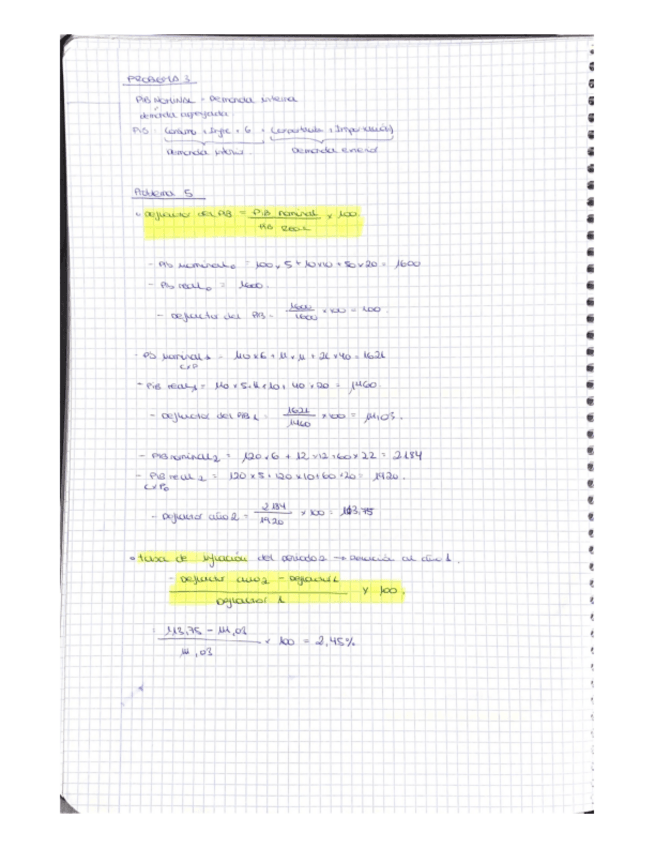 PROBLEMA 3
PIB NOMINAL = Demanda interna
demanda agregada
PIB = Consumo + Inv + G +
Demanda interna. Demanda exterior
Problema 5
• deflactor del PIB = PIB nominal / PIB REAL × 100
- PIB nominal₀ = 100 × 5 + 10×10 + 50 × 20 = 1600
- PIB real₀ = 1600.
- deflactor del PIB = 1600/1600 × 100 = 100.
- PIB nominal₁ = 110×6 + 11 × 11 + 21 × 40 = 1621
- PIB real₁ = 110 × 5 + 11×10 + 40 × 20 = 1460.
- deflactor del PIB 1 = 1621/1460 × 100 = 111,03.
- PIB nominal₂ = 120 × 6 + 12 × 12 + 60 × 22 = 2184
- PIB real₂ = 120 × 5 + 120 × 10 + 60 + 20 = 1920.
- Deflactor año 2 = 2184/1920 × 100 = 113,75
• tasa de inflación del periodo 2 → al año 1.
= deflactor año 2 - deflactor 1 / Deflactor 1 × 100.
= 113,75 - 111,03 / 111,03 × 100 = 2,45%